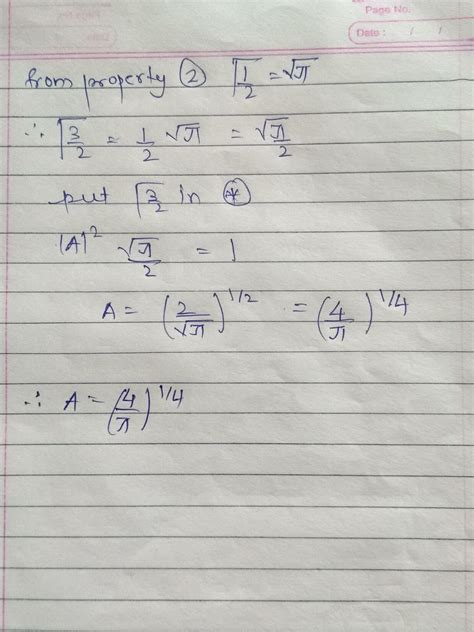 Page No.
Date : / /
from property ② Γ1/2 = √π
∴ Γ3/2 = 1/2 √π = √π/2
put Γ3/2 in ⊛
|A|² √π/2 = 1
A = (2/√π)^1/2 = (4/π)^1/4
∴ A = (4/π)^1/4